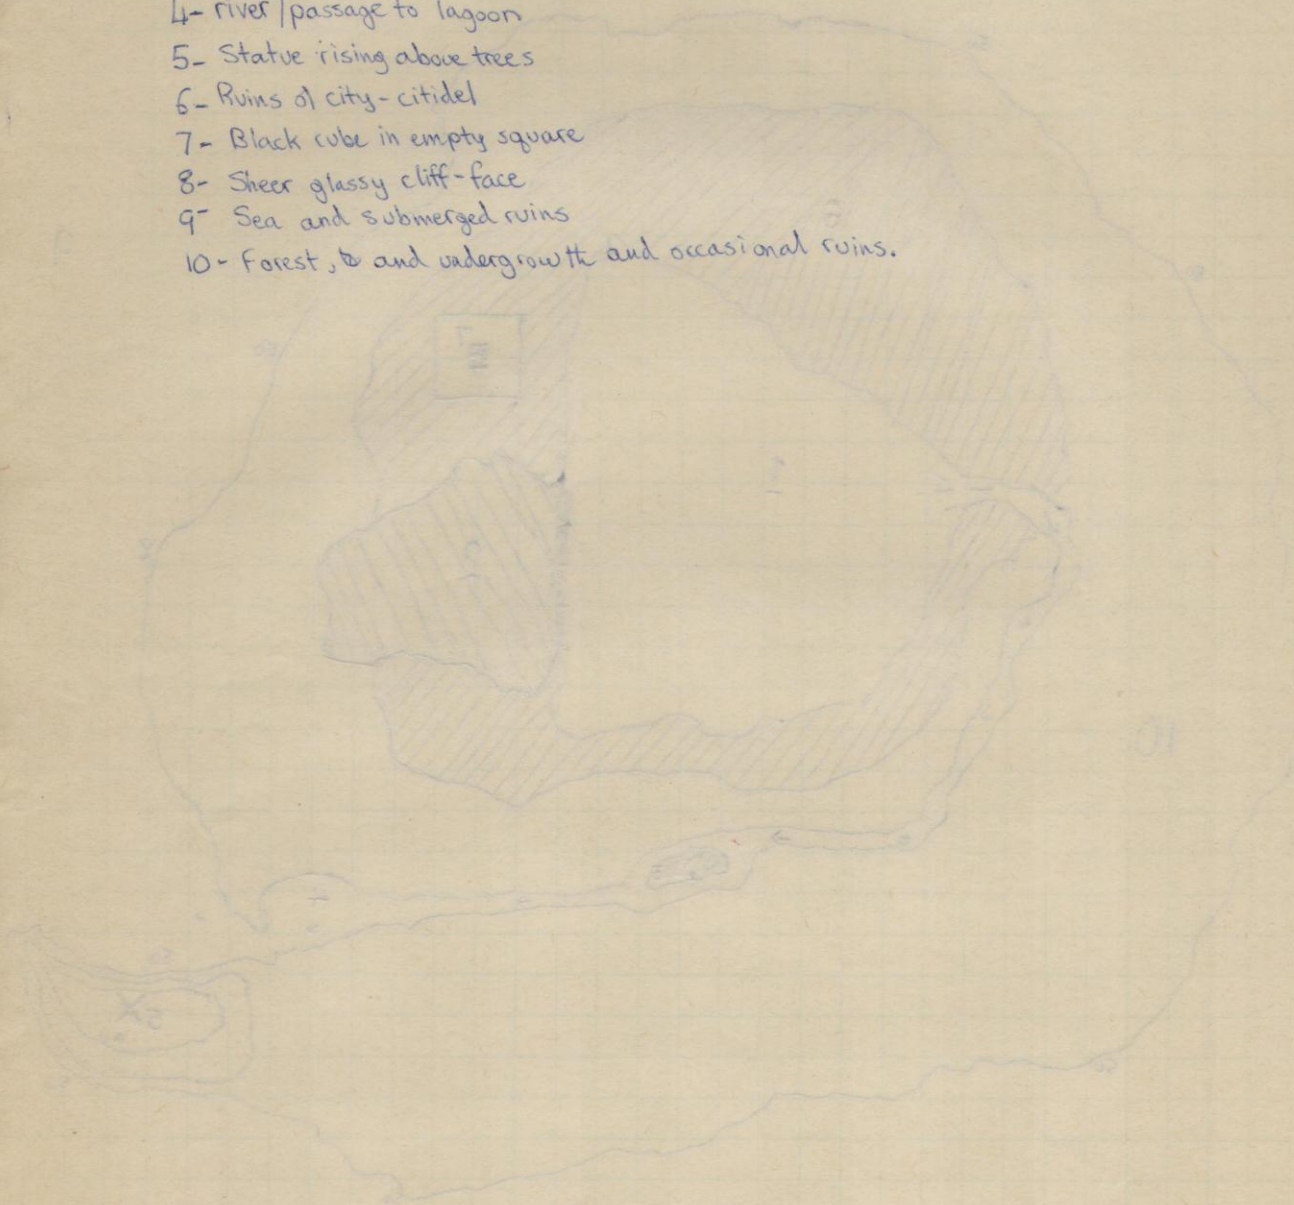 4- river/passage to lagoon
5- Statue rising above trees
6- Ruins of city-citidel
7- Black cube in empty square
8- Sheer glassy cliff-face
9- Sea and submerged ruins
10- Forest, and undergrowth and occasional ruins.
9
6
7
1
2
10